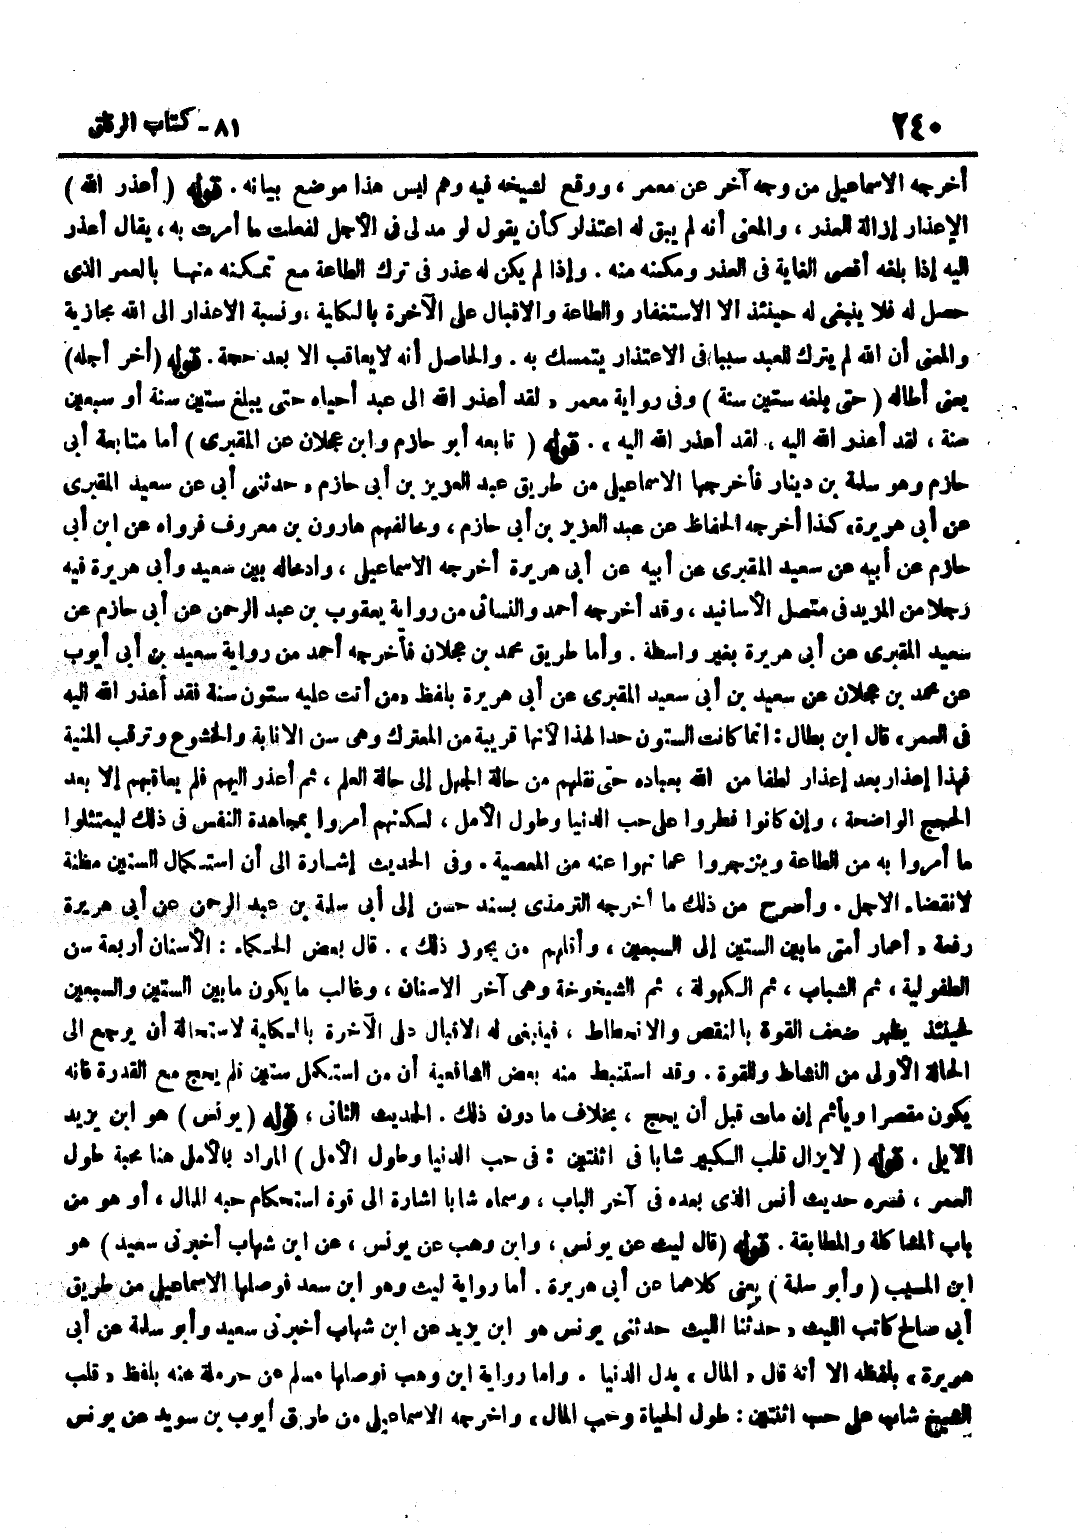 ٢٤٠
٨١ - كتاب الرقاق
أخرجه الاسماعيلى من وجه آخر عن معمر ، ووقع لشيخه فيه وهم ليس هذا موضع بيانه . قوله ( أعذر الله )
الإعذار إزالة العذر ، والمعنى أنه لم يبق له اعتذار كأن يقول لو مد لى فى الأجل لفعلت ما أمرت به ، يقال أعذر
اليه إذا بلغه أقصى الغاية فى العذر ومكنه منه . وإذا لم يكن له عذر فى ترك الطاعة مع تمكنه منها بالعمر الذى
حصل له فلا ينبغى له حينئذ الا الاستغفار والطاعة والاقبال على الآخرة بالكلية ، ونسبة الاعذار الى الله مجازية
والمعنى أن الله لم يترك للعبد سببا فى الاعتذار يتمسك به . والحاصل أنه لا يعاقب الا بعد حجة . قوله (أخر أجله)
يعنى أطاله ( حتى بلغه ستين سنة ) وفى رواية معمر « لقد أعذر الله الى عبد أحياه حتى يبلغ ستين سنة أو سبعين
سنة ، لقد أعذر الله اليه ، لقد أعذر الله اليه » . قوله ( تابعه أبو حازم وابن عجلان عن المقبرى ) أما متابعة أبى
حازم وهو سلمة بن دينار فأخرجها الاسماعيلى من طريق عبد العزيز بن أبى حازم « حدثنى أبى عن سعيد المقبرى
عن أبى هريرة» كذا أخرجه الحفاظ عن عبد العزيز بن أبى حازم ، وخالفهم هارون بن معروف فرواه عن ابن أبى
حازم عن أبيه عن سعيد المقبرى عن أبيه عن أبى هريرة أخرجه الاسماعيلى ، وادخاله بين سعيد وأبى هريرة فيه
رجلا من المزيد فى متصل الأسانيد ، وقد أخرجه أحمد والنسائى من رواية يعقوب بن عبد الرحمن عن أبى حازم عن
سعيد المقبرى عن أبى هريرة بغير واسطة . وأما طريق محمد بن عجلان فأخرجه أحمد من رواية سعيد بن أبى أيوب
عن محمد بن عجلان عن سعيد بن أبى سعيد المقبرى عن أبى هريرة بلفظ «من أتت عليه ستون سنة فقد أعذر الله اليه
فى العمر» قال ابن بطال : انما كانت الستون حدا لهذا لأنها قريبة من المعترك وهى سن الانابة والخشوع وترقب المنية
فهذا إعذار بعد إعذار لطفا من الله بعباده حتى نقلهم من حالة الجهل إلى حالة العلم ، ثم أعذر اليهم فلم يعاقبهم إلا بعد
الحجج الواضحة ، وإن كانوا فطروا على حب الدنيا وطول الأمل ، لكنهم أمروا بمجاهدة النفس فى ذلك ليمتثلوا
ما أمروا به من الطاعة وينزجروا عما نهوا عنه من المعصية . وفى الحديث إشارة الى أن استكمال الستين مظنة
لانقضاء الاجل . وأصرح من ذلك ما أخرجه الترمذى بسند حسن إلى أبى سلمة بن عبد الرحمن عن أبى هريرة
رفعه « أعمار أمتى ما بين الستين إلى السبعين ، وأقلهم من يجوز ذلك » . قال بعض الحكماء : الأسنان أربعة سن
الطفولية ، ثم الشباب ، ثم الكهولة ، ثم الشيخوخة وهى آخر الاسنان ، وغالب ما يكون ما بين الستين والسبعين
فحينئذ يظهر ضعف القوة بالنقص والانحطاط ، فينبغى له الاقبال على الآخرة بالكلية لاستحالة أن يرجع الى
الحالة الأولى من النشاط والقوة . وقد استنبط منه بعض الشافعية أن من استكمل ستين فلم يحج مع القدرة فانه
يكون مقصرا ويأثم إن مات قبل أن يحج ، بخلاف ما دون ذلك . الحديث الثانى ، قوله ( يونس ) هو ابن يزيد
الايلى . قوله ( لا يزال قلب الكبير شابا فى اثنتين : فى حب الدنيا وطول الأمل ) المراد بالأمل هنا محبة طول
العمر ، فسره حديث أنس الذى بعده فى آخر الباب ، وسماه شابا اشارة الى قوة استحكام حبه المال ، أو هو من
باب المشاكلة والمطابقة . قوله (قال ليث عن يونس ، وابن وهب عن يونس ، عن ابن شهاب أخبرنى سعيد ) هو
ابن المسيب ( وأبو سلمة ) يعنى كلاهما عن أبى هريرة . أما رواية ليث وهو ابن سعد فوصلها الاسماعيلى من طريق
أبى صالح كاتب الليث « حدثنا الليث حدثنى يونس هو ابن يزيد عن ابن شهاب أخبرنى سعيد وأبو سلمة عن أبى
هريرة » بلفظه الا أنه قال « المال » بدل الدنيا . واما رواية ابن وهب فوصلها مسلم عن حرملة عنه بلفظ « قلب
الشيخ شاب على حب اثنتين : طول الحياة وحب المال» واخرجه الاسماعيلى من طريق أيوب بن سويد عن يونس